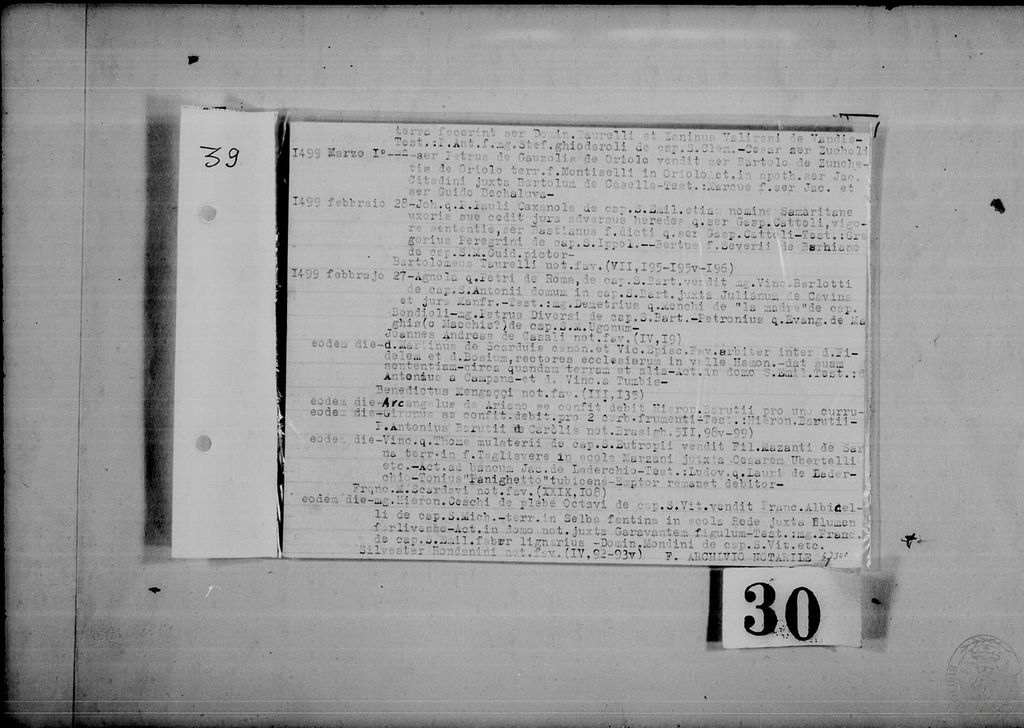 39
terra fecerint ser Domin.Taurelli et Zaninus Valireni de Vandis-
Test.:P.Ant.f.mg.Stef.ghioderoli de cap.S.Clem.-Cesar ser Zucholi
I499 Marzo I°---ser Petrus de Gauzolis de Oriolo vendit ser Bartolo de Zunche-
tis de Oriolo terr.f.Montiselli in Oriolo.ct.in apoth.ser Jac.
Citadini juxta Bartolum de Casella-Test.:Marcus f.ser Jac. et
ser Guido Bechaluva-
I499 febbraio 28-Joh.q.P.Pauli Caxanola de cap.S.Emil.etiam nomine Samaritane
uxoris sue cedit jura adversus heredes q.ser Gasp.Cattoli,vigo-
re sententie,ser Bastianus f.dicti q.ser Gasp.Cattoli-Test.:Gre
gorius Peregrini de cap.S.Ippol.--Bertus f.Severii de Barbiano
de cap.S.M.Guid.pictor-
Bartolomeus Taurelli not.fav.(VII,I95-I95v-I96)
I499 febbrajo 27-Agnola q.Petri de Roma,de cap.S.Bart.vendit mg.Vinc.Barlotti
de cap.S.Antonii domum in cap.S.Bart.juxta Julianum de Cavina
et jura Manfr.-Test.:mg.Demetrius q.Menchi de "la madre"de cap.
Bondioli-mg.Petrus Diversi de cap.S.Bart.-Petronius q.Evang.de Ma
ghis(o Macchis?)de cap.S.M.Ugonum-
Joannes Andreas de Casali not.fav.(IV,I9)
eodem die-d.Martinus de Scarduis canon.et Vic.Episc.Fav.arbiter inter d.Fi-
delem et d.Bosium,rectores ecclesiarum in valle Hamon.-dat suam
sententiam-circa quandam terram et alia-Act.in domo S.Emil.Test.:d
Antonius a Campana-et d. Vinc.a Tumbis-
Benedictus Mengacci not.fav.(III,I35)
eodem die-Arcangelus de Ariano se confit debit Hieron.Barutii pro uno curru-
eodem die-Gironus se confit.debit.pro 2 corb.frumenti-Test.:Hieron.Barutii-
P.Antonius Barutii de Carolis not.Brasigh.5II,98v-99)
eodem die-Vinc.q.Thome mulaterii de cap.S.Eutropii vendit Fil.Mazanti de Sar
na terr.in f.Tagliavere in scola Marzani juxta Cesarem Ubertelli
etc.-Act.ad bancum Jac.de Laderchio-Test.:Ludov.q.Lauri de Lader-
chio-Tonius"Panighetto"tubicens-Emptor remanet debitor-
Franc.M.Scardavi not.fav.(XXIX,I08)
eodem die-mg.Hieron.Ceschi de plebe Octavi de cap.S.Vit.vendit Franc.Albicel-
li de cap.S.Mich.-terr.in Selba fantina in scola Rede juxta flumen
forlivense-Act.in domo not.juxta Garavantem figulum-Test.:mg.Franc.
de cap.S.Emil.faber lignarius -Domin.Mondini de cap.S.Vit.etc.
Silvester Rondanini not.fav.(IV,92-93v) F. ARCHIVIO NOTARILE
30